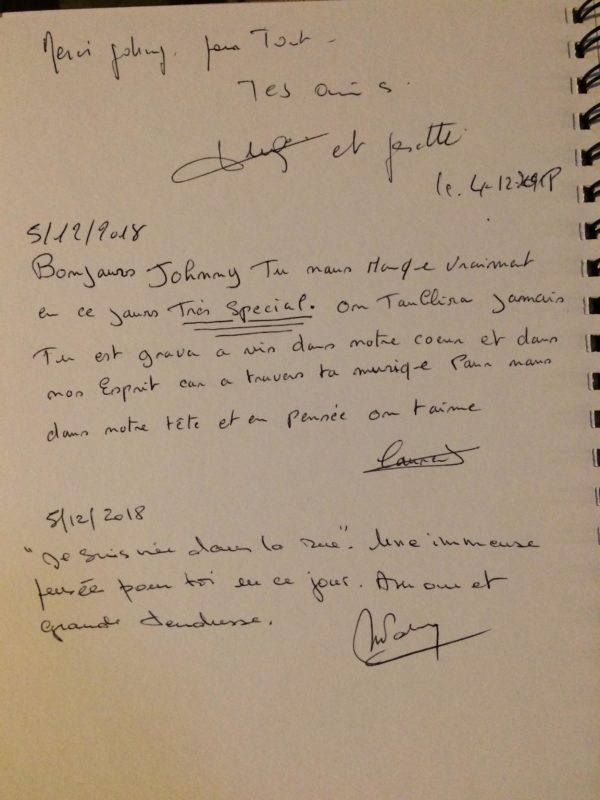 Merci Johny. pour Tout -
Tes amis.
et Josette
le. 4-12-
5/12/2018
Bonjours Johnny Tu nous Manque vraimant
en ce jours Très Special. on Taublira jamais
Tu est grava a vis dans notre coeur et dans
nos Esprit car a travers ta musique Pour nous
dans notre tête et en pensée on t'aime
Laurent
5/12/2018
"Je suis née dans la rue". Une immense
pensée pour toi en ce jour. Amour et
grande tendresse.